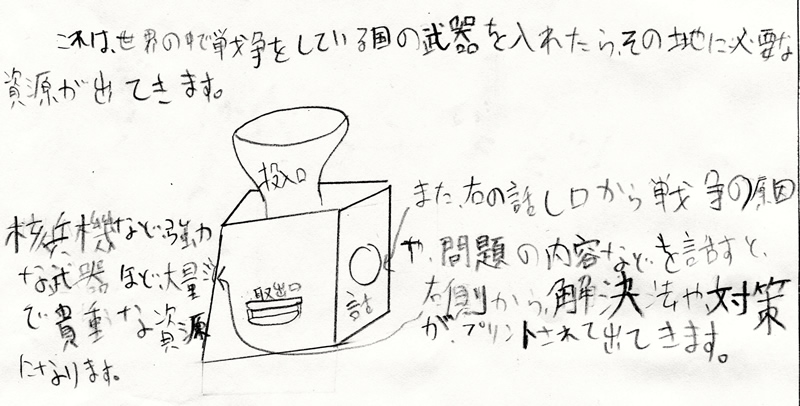 これは、世界の中で戦争をしている国の武器を入れたら、その地に必要な
資源が出てきます。
投入口
また、右の話し口から戦争の原因
や、問題の内容などを話すと、
右側から、解決法や、対策
が、プリントされて出てきます。
核兵機など強力
な武器ほど、大量
で貴重な資源
になります。
取出口
話